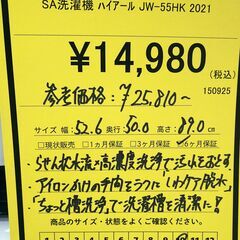 SA洗濯機 ハイアール JW-55HK 2021
¥14,980
(税込)
参考価格：¥25,810〜
150925
サイズ 幅：52.6 奥行：50.0 高さ：89.0 cm
□現状販売 □1ヵ月保証 □3ヶ月保証 □6ヶ月保証
・らせん状水流×高濃度洗浄で汚れをおとす
・アイロンがけの手間をラクに「しわケア脱水」
・「ちょっと槽洗浄」で洗濯槽を清潔に！
商品のサイズ・状態をよくご確認ください。